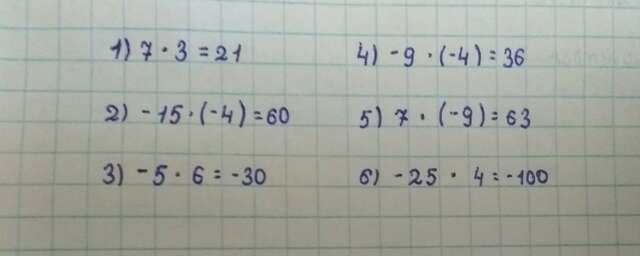 1) 7 · 3 = 21
2) -15 · (-4) = 60
3) -5 · 6 = -30
4) -9 · (-4) = 36
5) 7 · (-9) = 63
6) -25 · 4 = -100